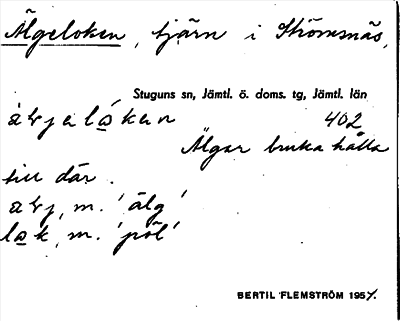 Älgeloken, tjärn i Strömsnäs,
Stuguns sn, Jämtl. ö. doms. tg, Jämtl. län
402
Älgar bruka hålla
till där.
m. 'älg'
m. 'pöl'
BERTIL FLEMSTRÖM 1951.